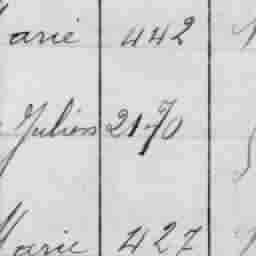 arie 442
Julien 2170
Marie 427